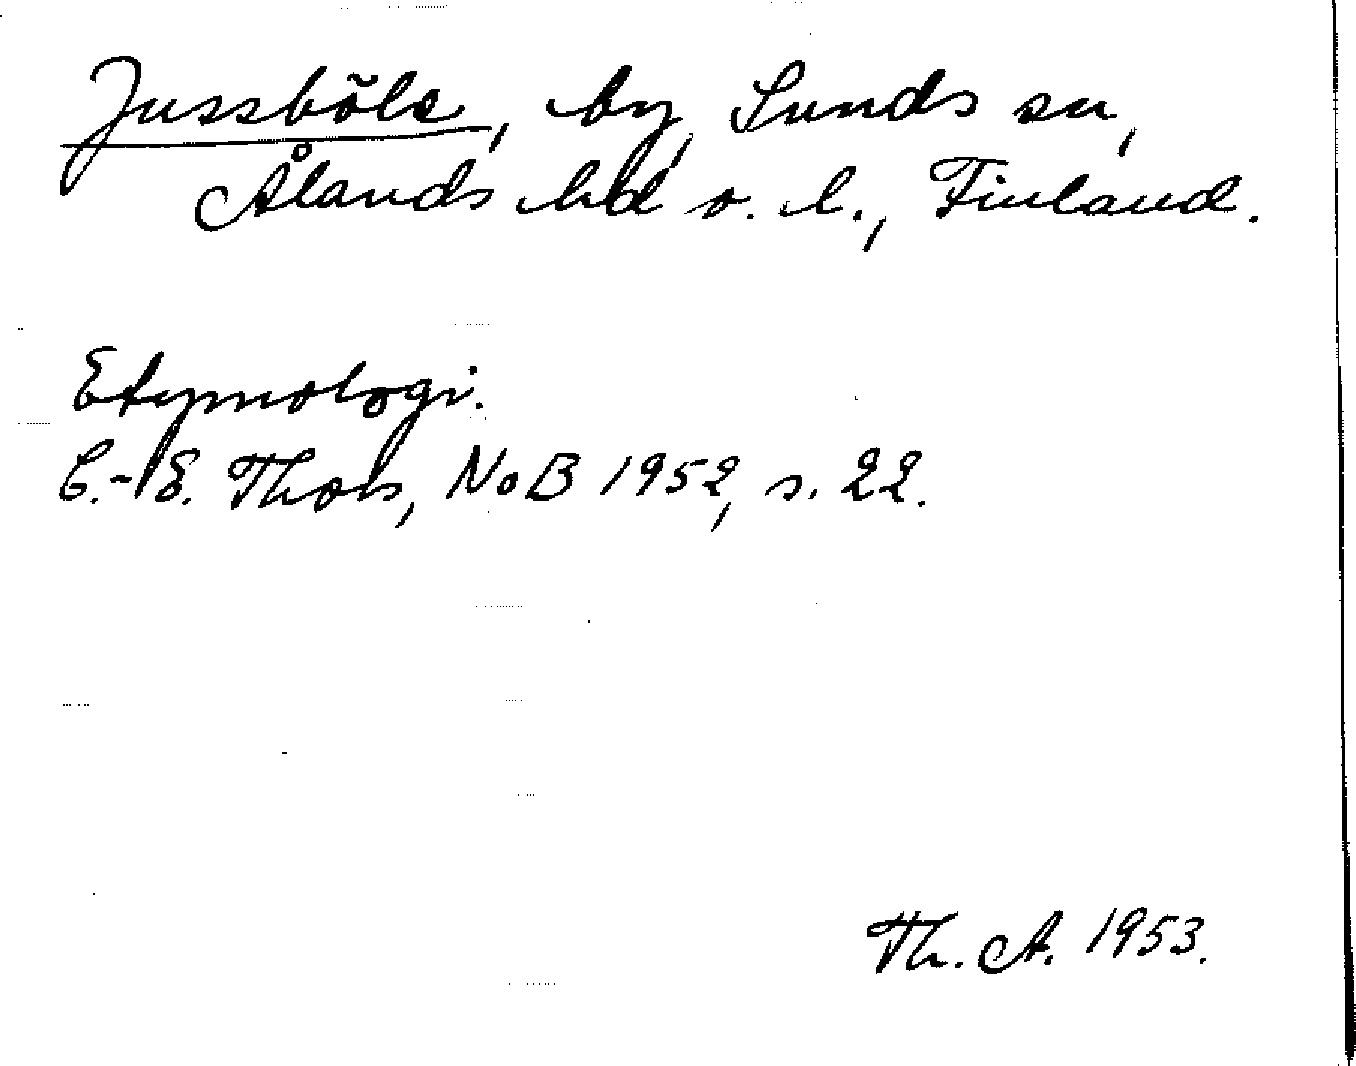 Jussböle, by, Sunds sn,
Ålands hd o. l., Finland.
Etymologi.
C.-E. Thors, NoB 1952, s. 22.
Th. A. 1953.